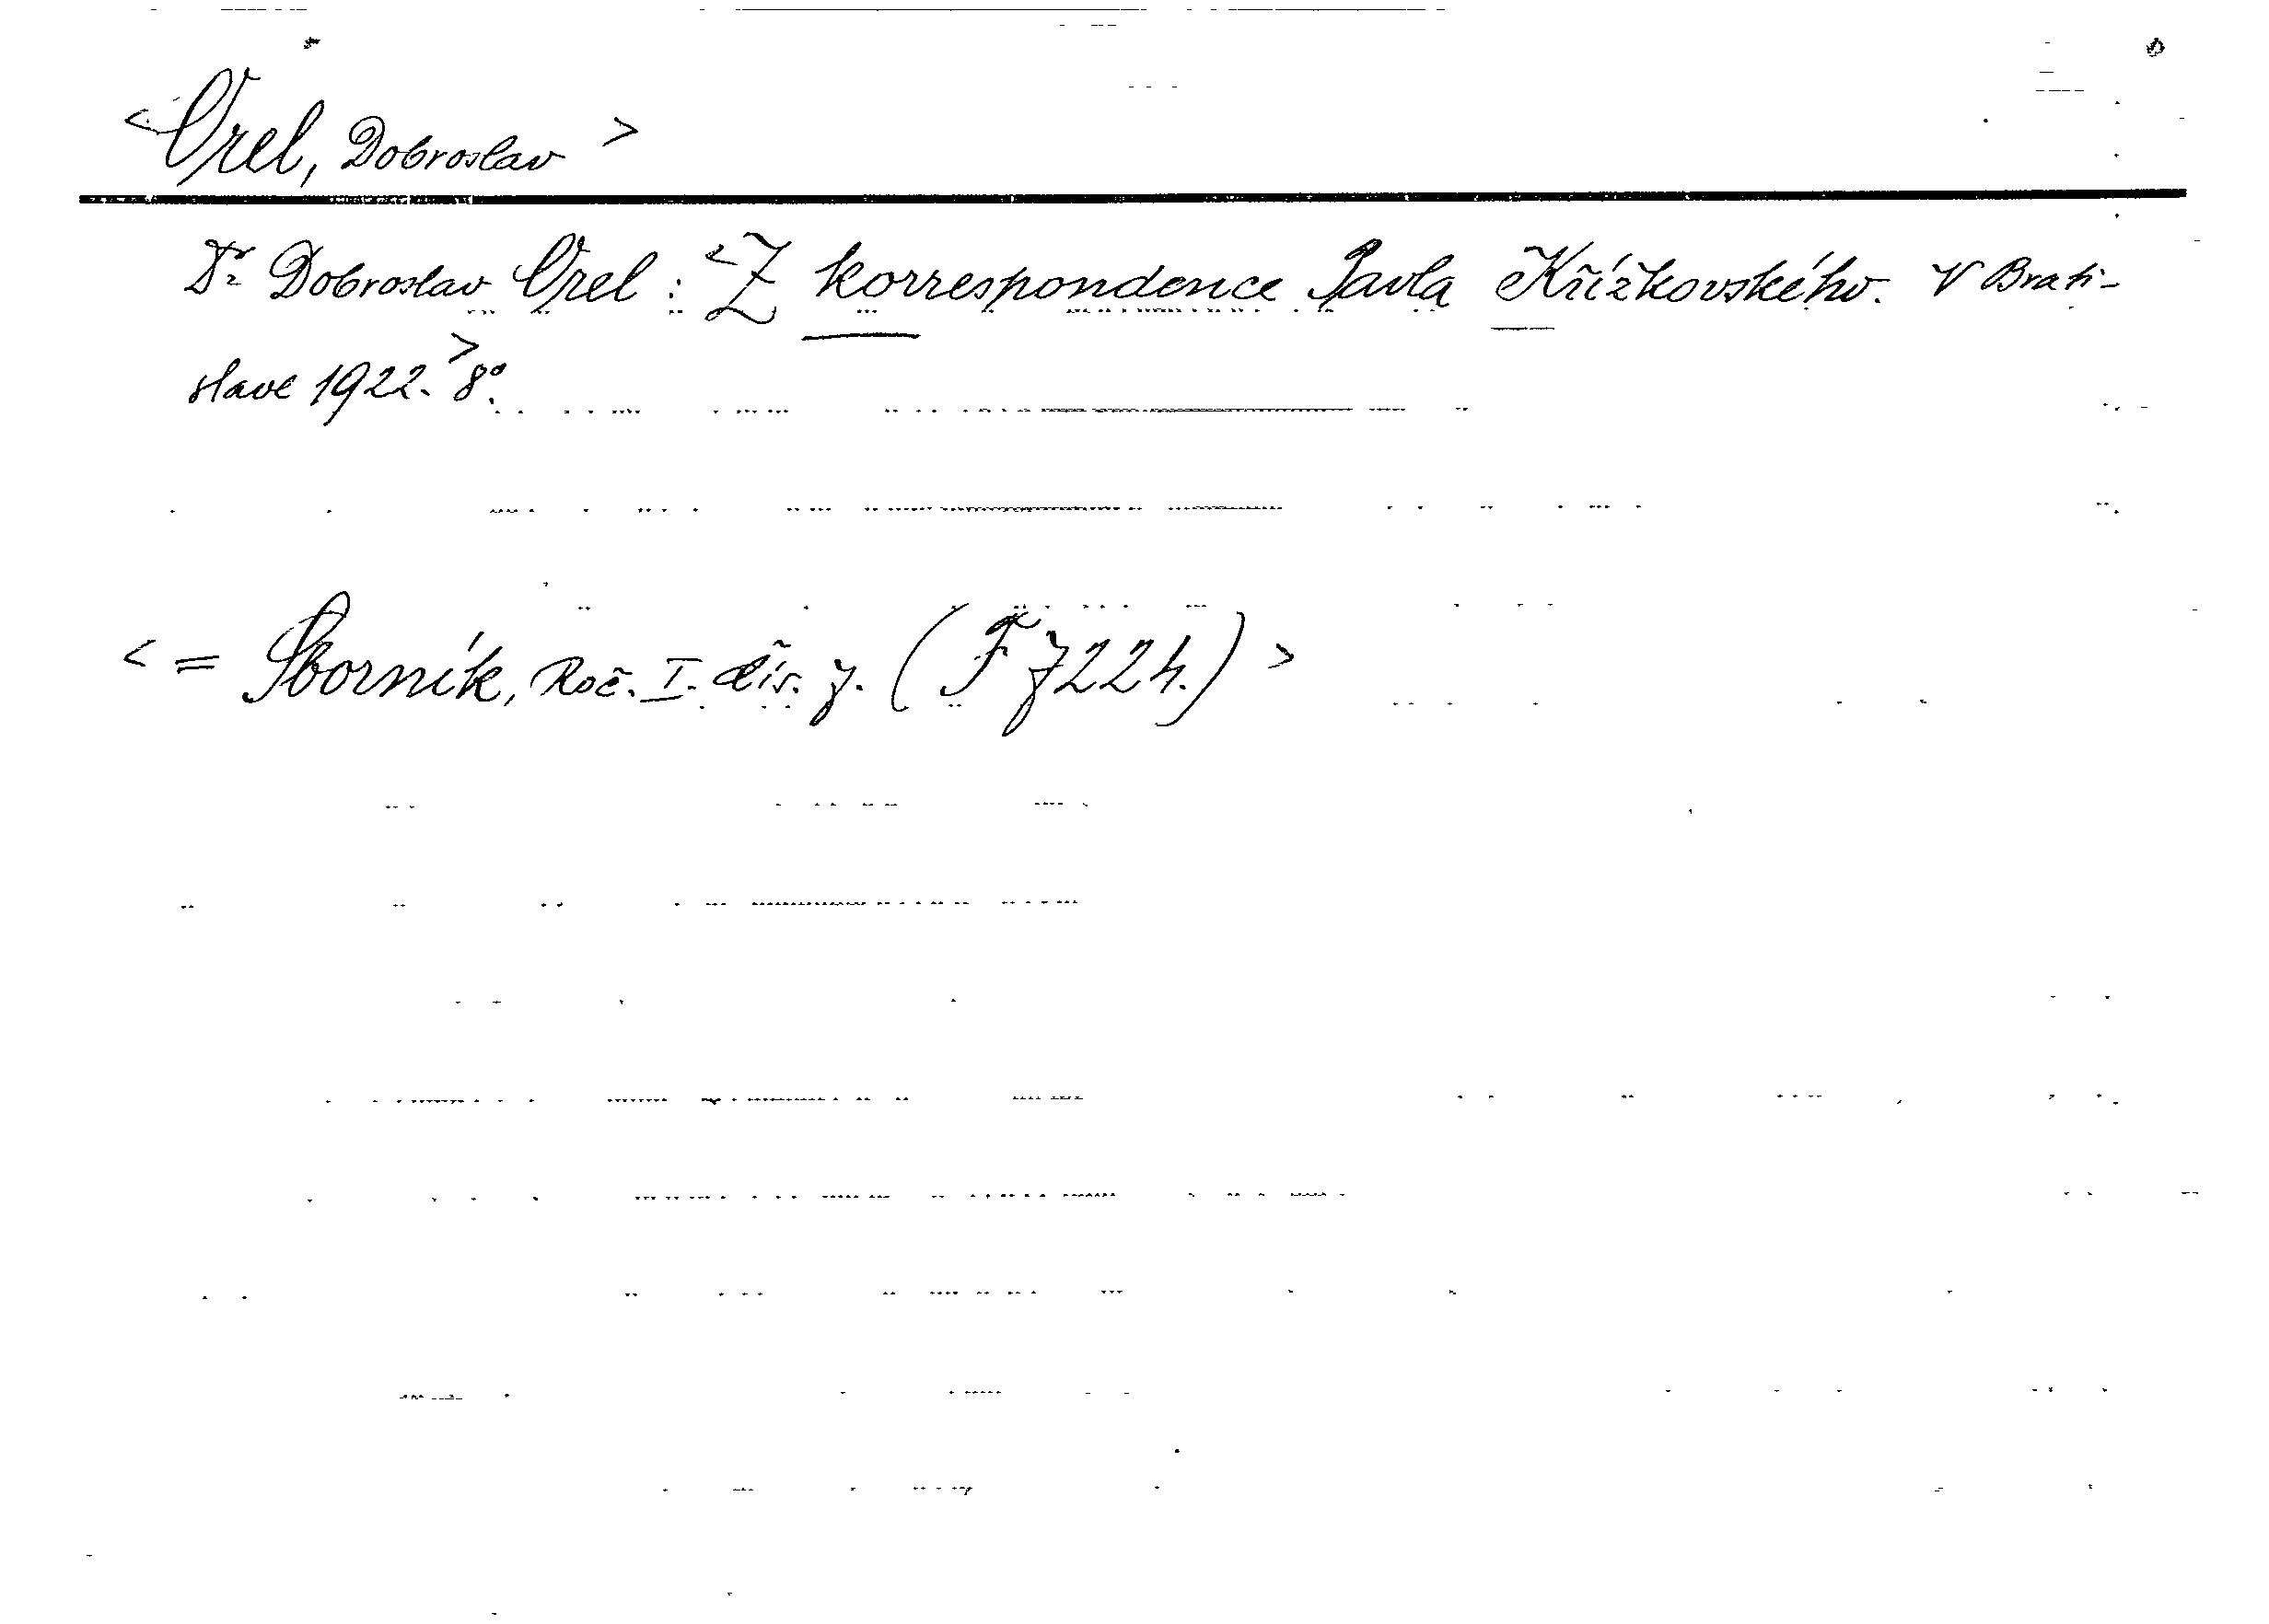 <Orel, Dobroslav>
Dr Dobroslav Orel: <Z korrespondence Pavla Křížkovského. V Brati-
slave 1922.> 8°.
<= Sborník, Roč. I. čís. 7. (F 7224.)>